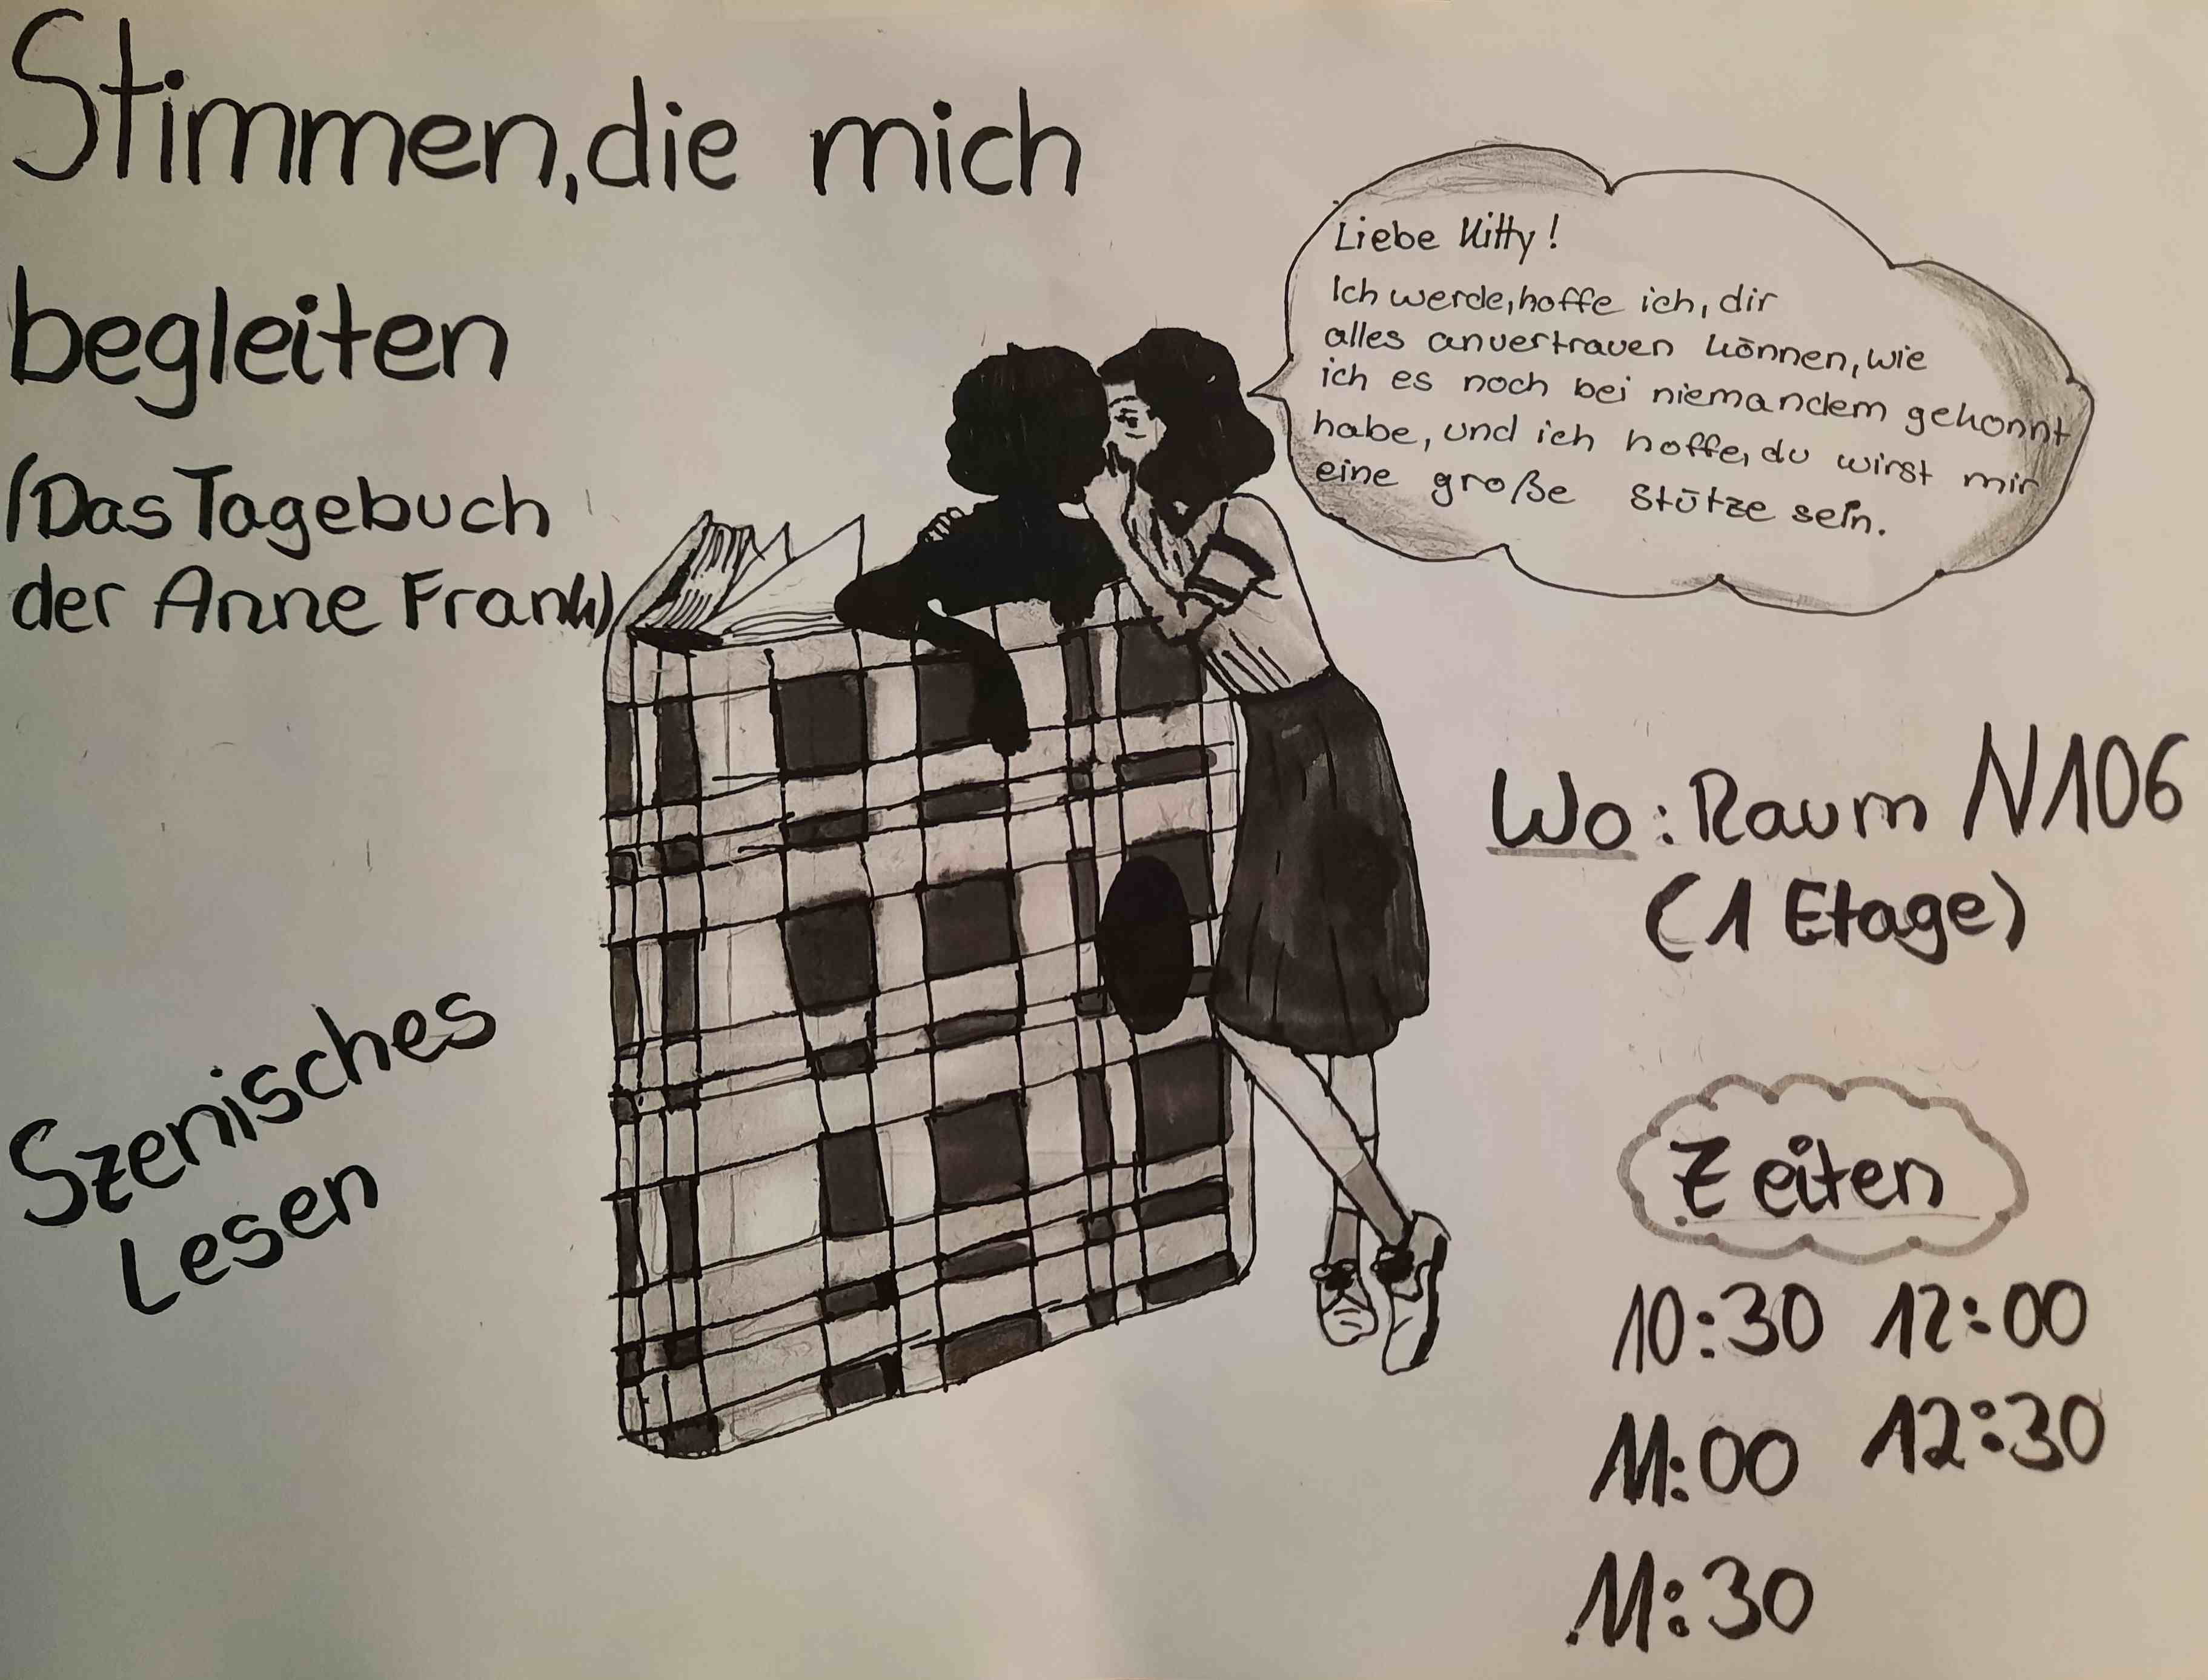 Stimmen, die mich
begleiten
(Das Tagebuch
der Anne Frank)
Liebe Kitty!
Ich werde, hoffe ich, dir
alles anvertrauen können, wie
ich es noch bei niemandem gekonnt
habe, und ich hoffe, du wirst mir
eine große Stütze sein.
Szenisches
Lesen
Wo: Raum N106
(1 Etage)
Zeiten
10:30 12:00
11:00 12:30
11:30